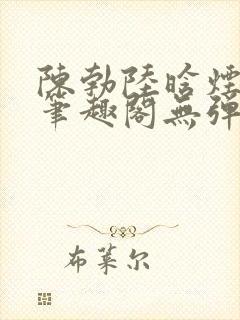 陳勃陸晗煙
筆趣閣無彈
布萊尔